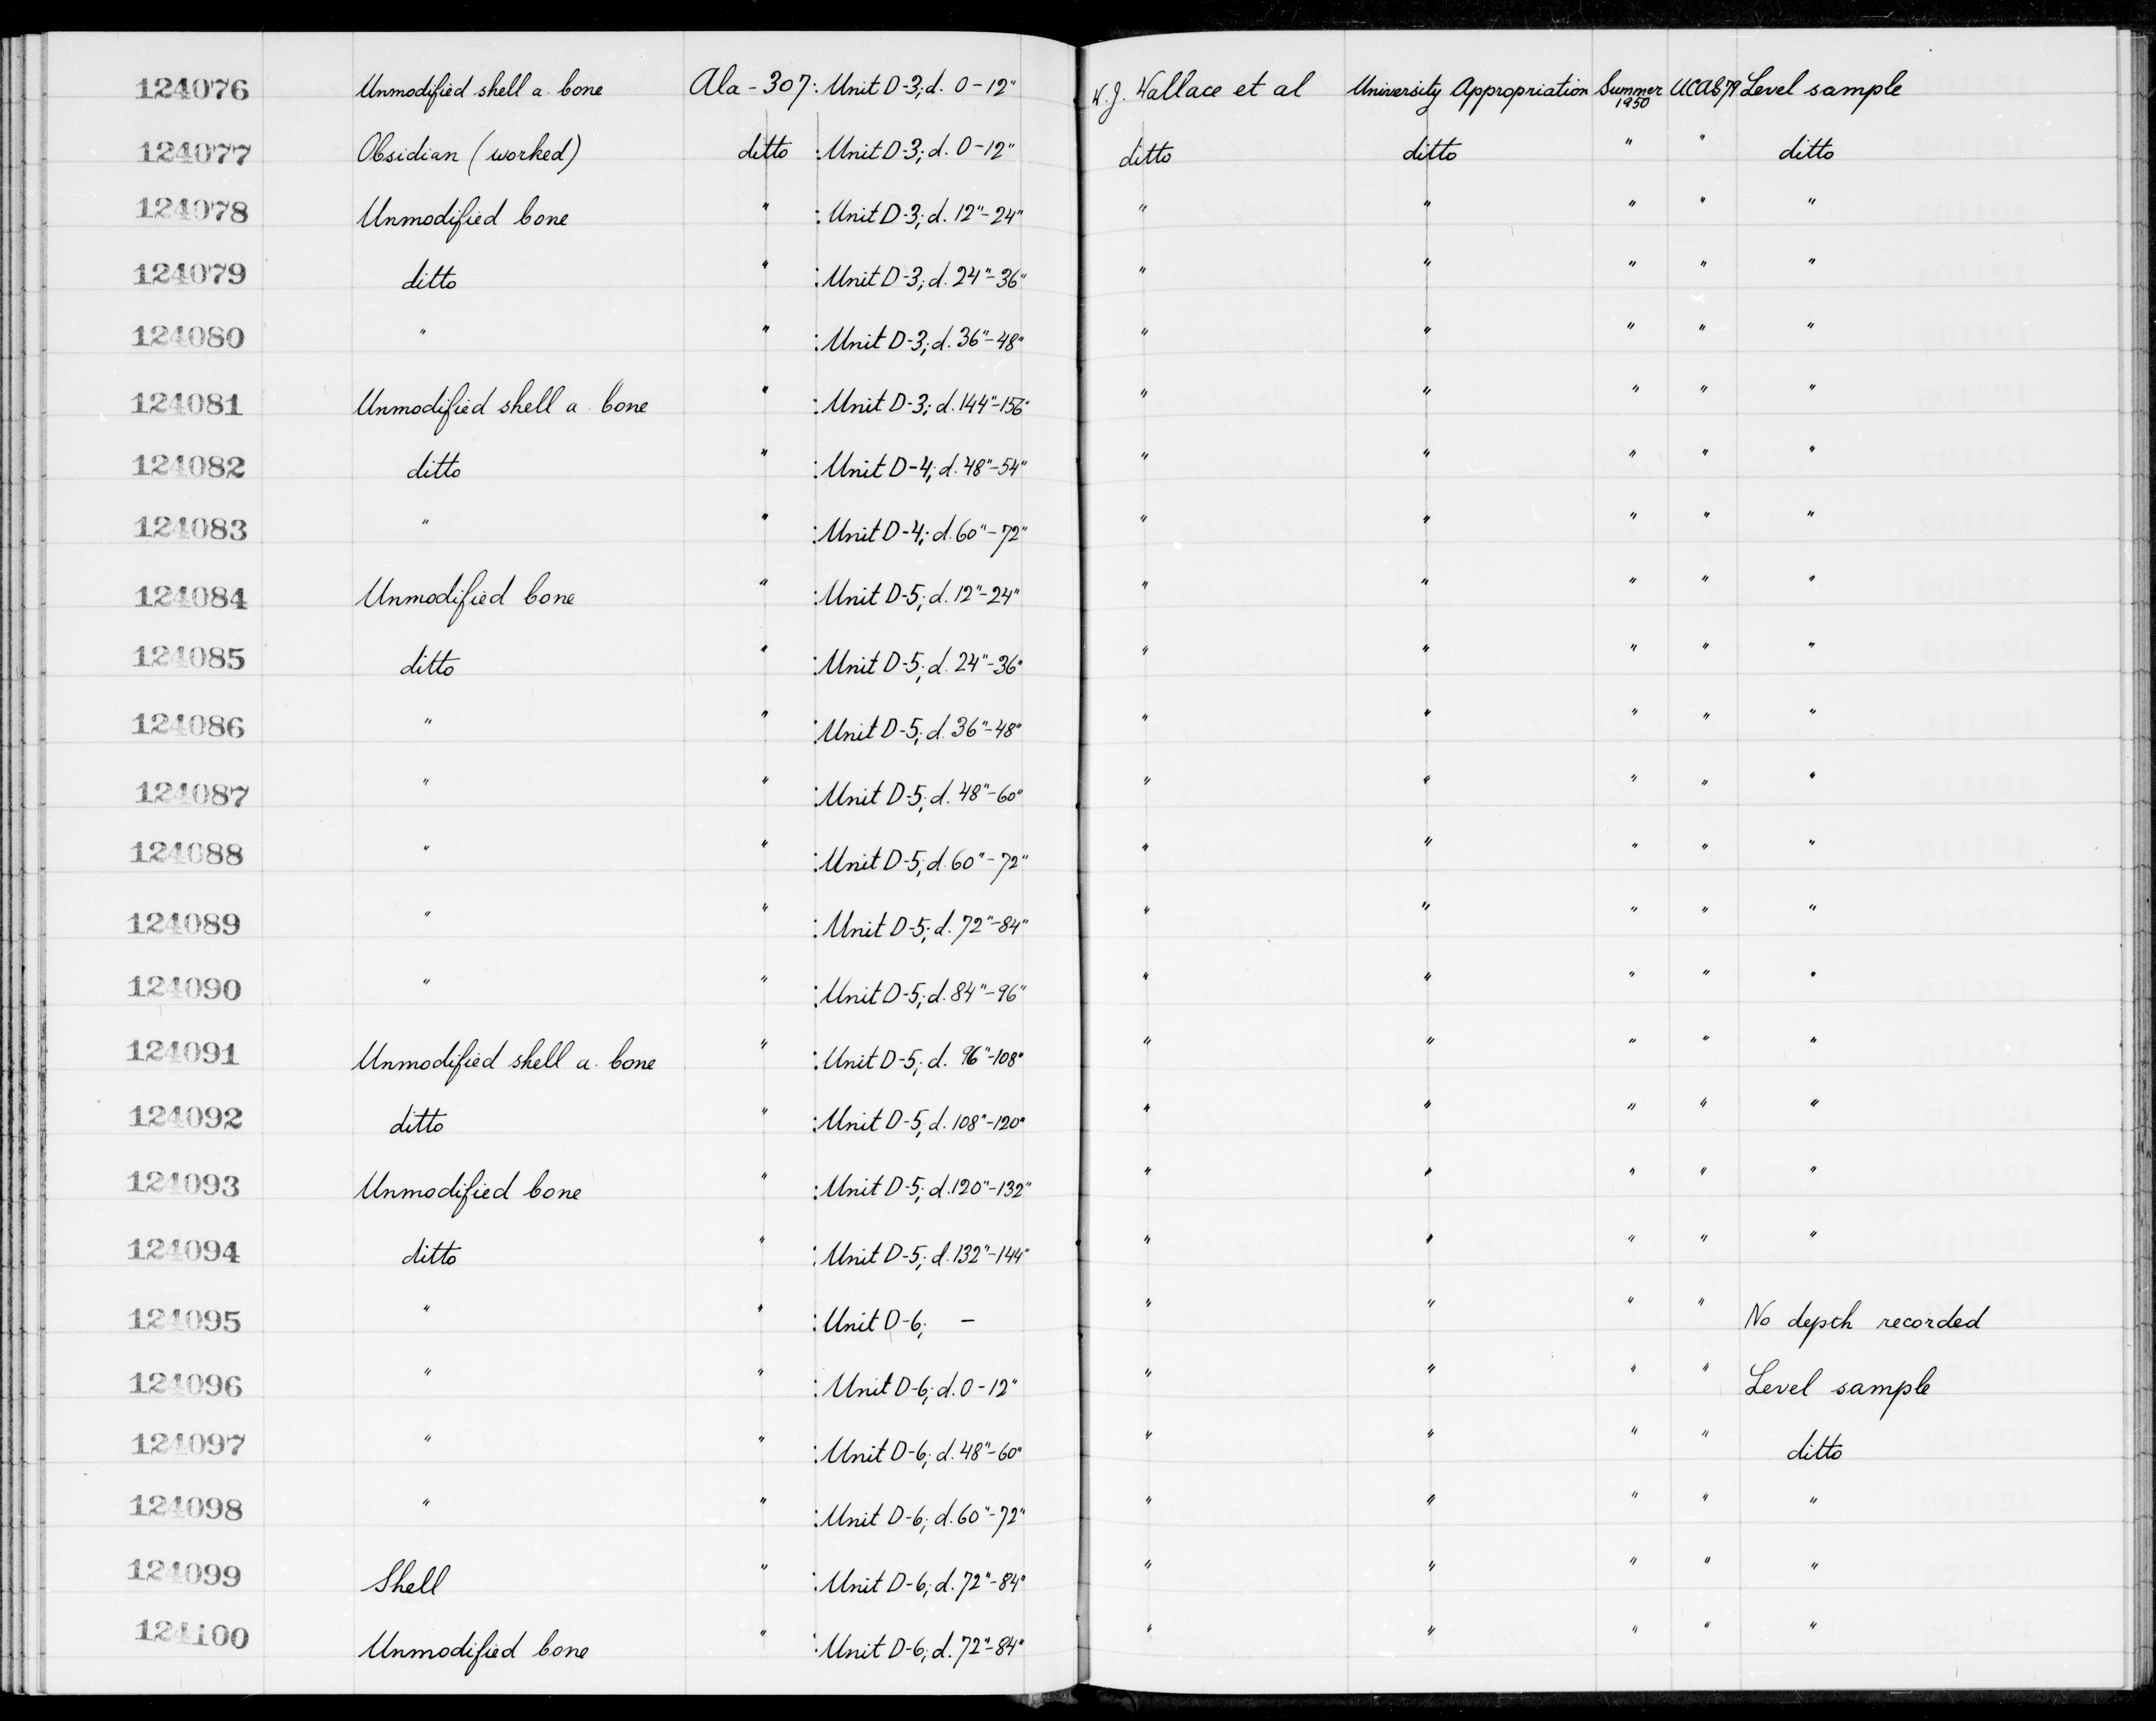 124076 Unmodified shell a. bone Ala-307: Unit D-3; d. 0-12" W.J. Wallace et al University Appropriation Summer 1950 UCAS 79 Level sample
124077 Obsidian (worked) ditto : Unit D-3; d. 0-12" ditto ditto " " ditto
124078 Unmodified bone " : Unit D-3; d. 12"-24" " " " " "
124079 ditto " : Unit D-3; d. 24"-36" " " " " "
124080 " " : Unit D-3; d. 36"-48" " " " " "
124081 Unmodified shell a. bone " : Unit D-3; d. 144"-156" " " " " "
124082 ditto " : Unit D-4; d. 48"-54" " " " " "
124083 " " : Unit D-4; d. 60"-72" " " " " "
124084 Unmodified bone " : Unit D-5; d. 12"-24" " " " " "
124085 ditto " : Unit D-5; d. 24"-36" " " " " "
124086 " " : Unit D-5; d. 36"-48" " " " " "
124087 " " : Unit D-5; d. 48"-60" " " " " "
124088 " " : Unit D-5; d. 60"-72" " " " " "
124089 " " : Unit D-5; d. 72"-84" " " " " "
124090 " " : Unit D-5; d. 84"-96" " " " " "
124091 Unmodified shell a. bone " : Unit D-5; d. 96"-108" " " " " "
124092 ditto " : Unit D-5; d. 108"-120" " " " " "
124093 Unmodified bone " : Unit D-5; d. 120"-132" " " " " "
124094 ditto " : Unit D-5; d. 132"-144" " " " " "
124095 " " : Unit D-6; - " " " " No depth recorded
124096 " " : Unit D-6; d. 0-12" " " " " Level sample
124097 " " : Unit D-6; d. 48"-60" " " " " ditto
124098 " " : Unit D-6; d. 60"-72" " " " " "
124099 Shell " : Unit D-6; d. 72"-84" " " " " "
124100 Unmodified bone " : Unit D-6; d. 72"-84" " " " " "